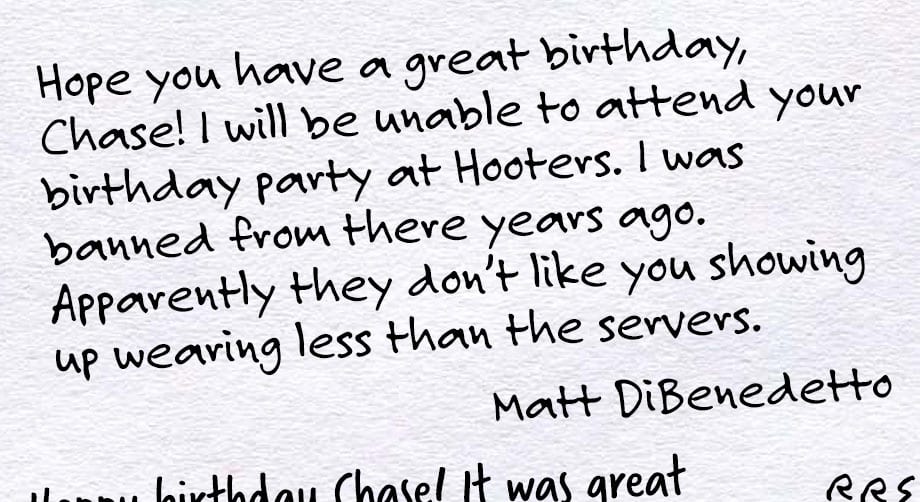 Hope you have a great birthday,
Chase! I will be unable to attend your
birthday party at Hooters. I was
banned from there years ago.
Apparently they don't like you showing
up wearing less than the servers.
Matt DiBenedetto
Happy birthday Chase! It was great